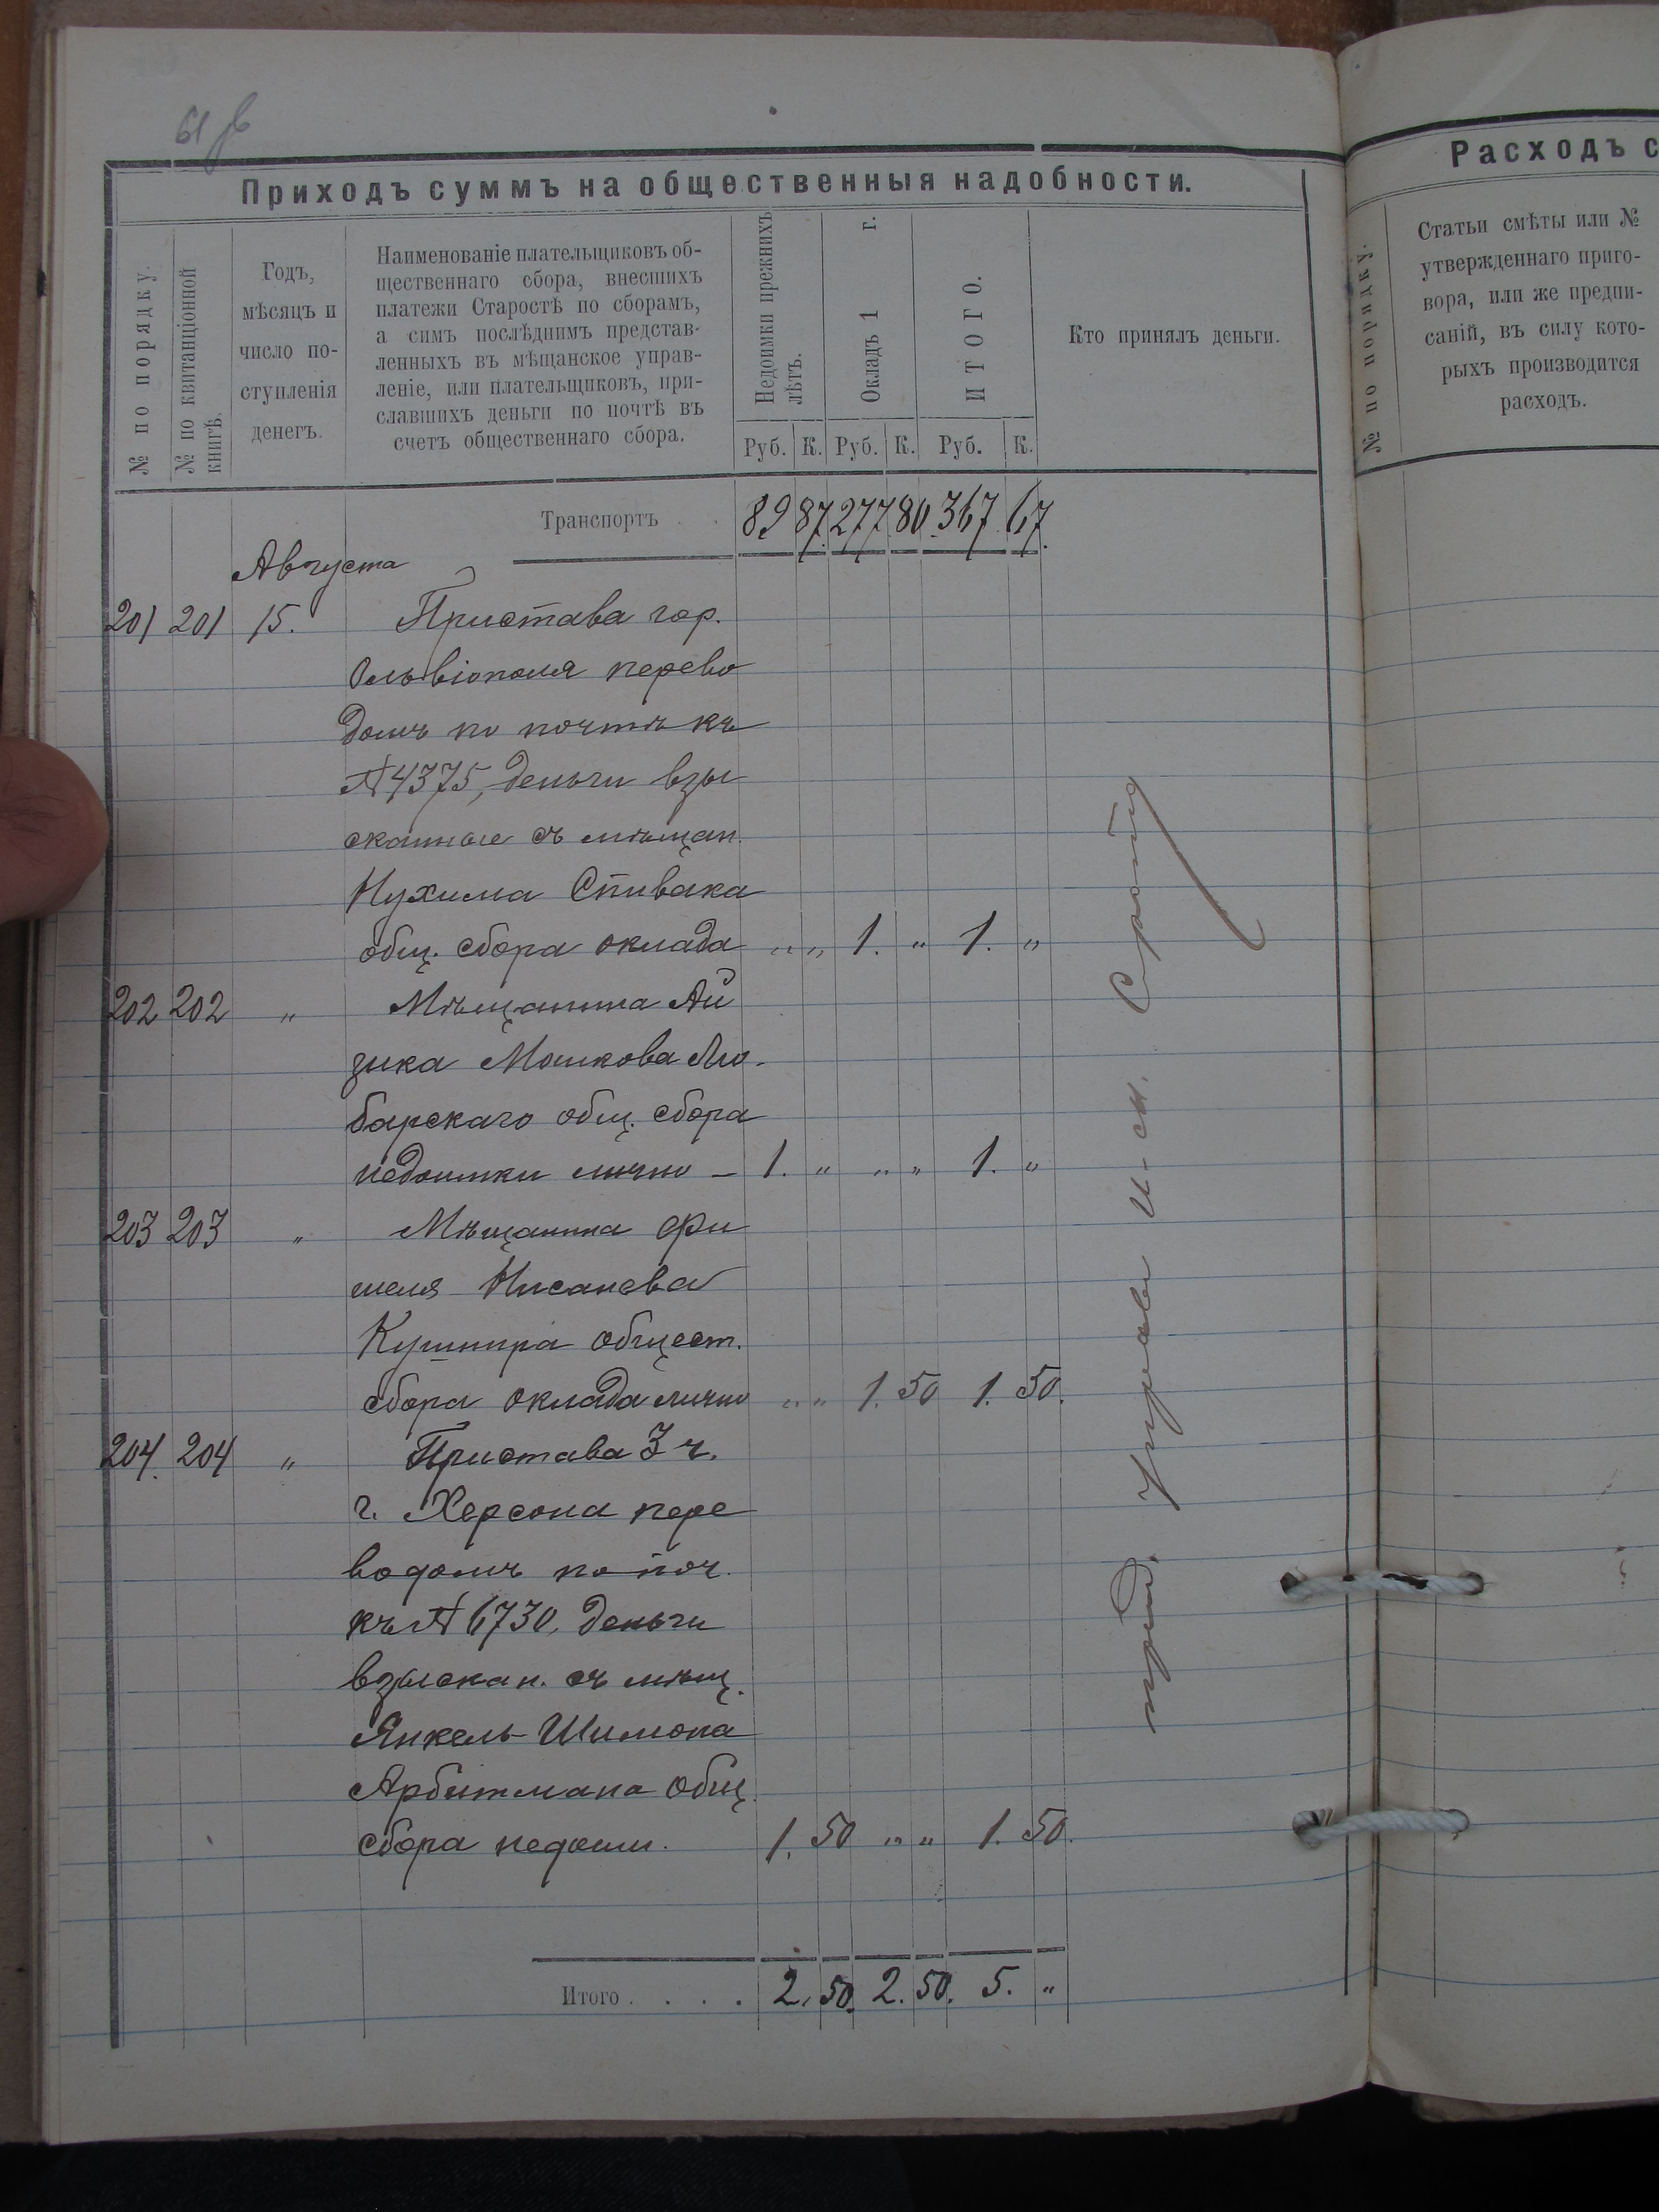 61 об
Приходъ суммъ на общественныя надобности.
№ по порядку.
№ по квитанціонной книгѣ.
Годъ,
мѣсяцъ и
число по-
ступленія
денегъ.
Наименованіе плательщиковъ об-
щественнаго сбора, внесшихъ
платежи Старостѣ по сборамъ,
а симъ послѣднимъ представ-
ленныхъ въ мѣщанское управ-
леніе, или плательщиковъ, при-
славшихъ деньги по почтѣ въ
счетъ общественнаго сбора.
Недоимки прежнихъ лѣтъ.
Окладъ 1 г.
ИТОГО.
Кто принялъ деньги.
Руб. К. Руб. К. Руб. К.
Транспортъ . . 89 87. 277 80. 367 67.
Августа
201 201 15. Пристава гор.
Ольвіополя перево
домъ по почтѣ къ
№ 4375, деньги взы
сканные съ мѣщан.
Нухима Спивака
общ. сбора оклада „ „ 1. „ 1. „
202 202 „ Мѣщанина Ай
зика Мошкова Лю-
барскаго общ. сбора
недоимки лично – 1. „ „ „ 1. „
203 203 „ Мѣщанина Фи
шеля Нисанева
Кушнира общест.
сбора оклада лично „ „ 1. 50 1. 50.
204. 204 „ Пристава 3 ч.
г. Херсона пере
водомъ по поч.
къ № 6730, деньги
взыскан. съ мѣщ.
Янкель-Шимона
Арбитмана общ.
сбора недоим. 1. 50 „ „ 1. 50.
Итого . . . . 2. 50. 2. 50. 5. „
Расходъ с
№ по порядку.
Статьи смѣты или №
утвержденнаго приго-
вора, или же предпи-
саній, въ силу кото-
рыхъ производится
расходъ.